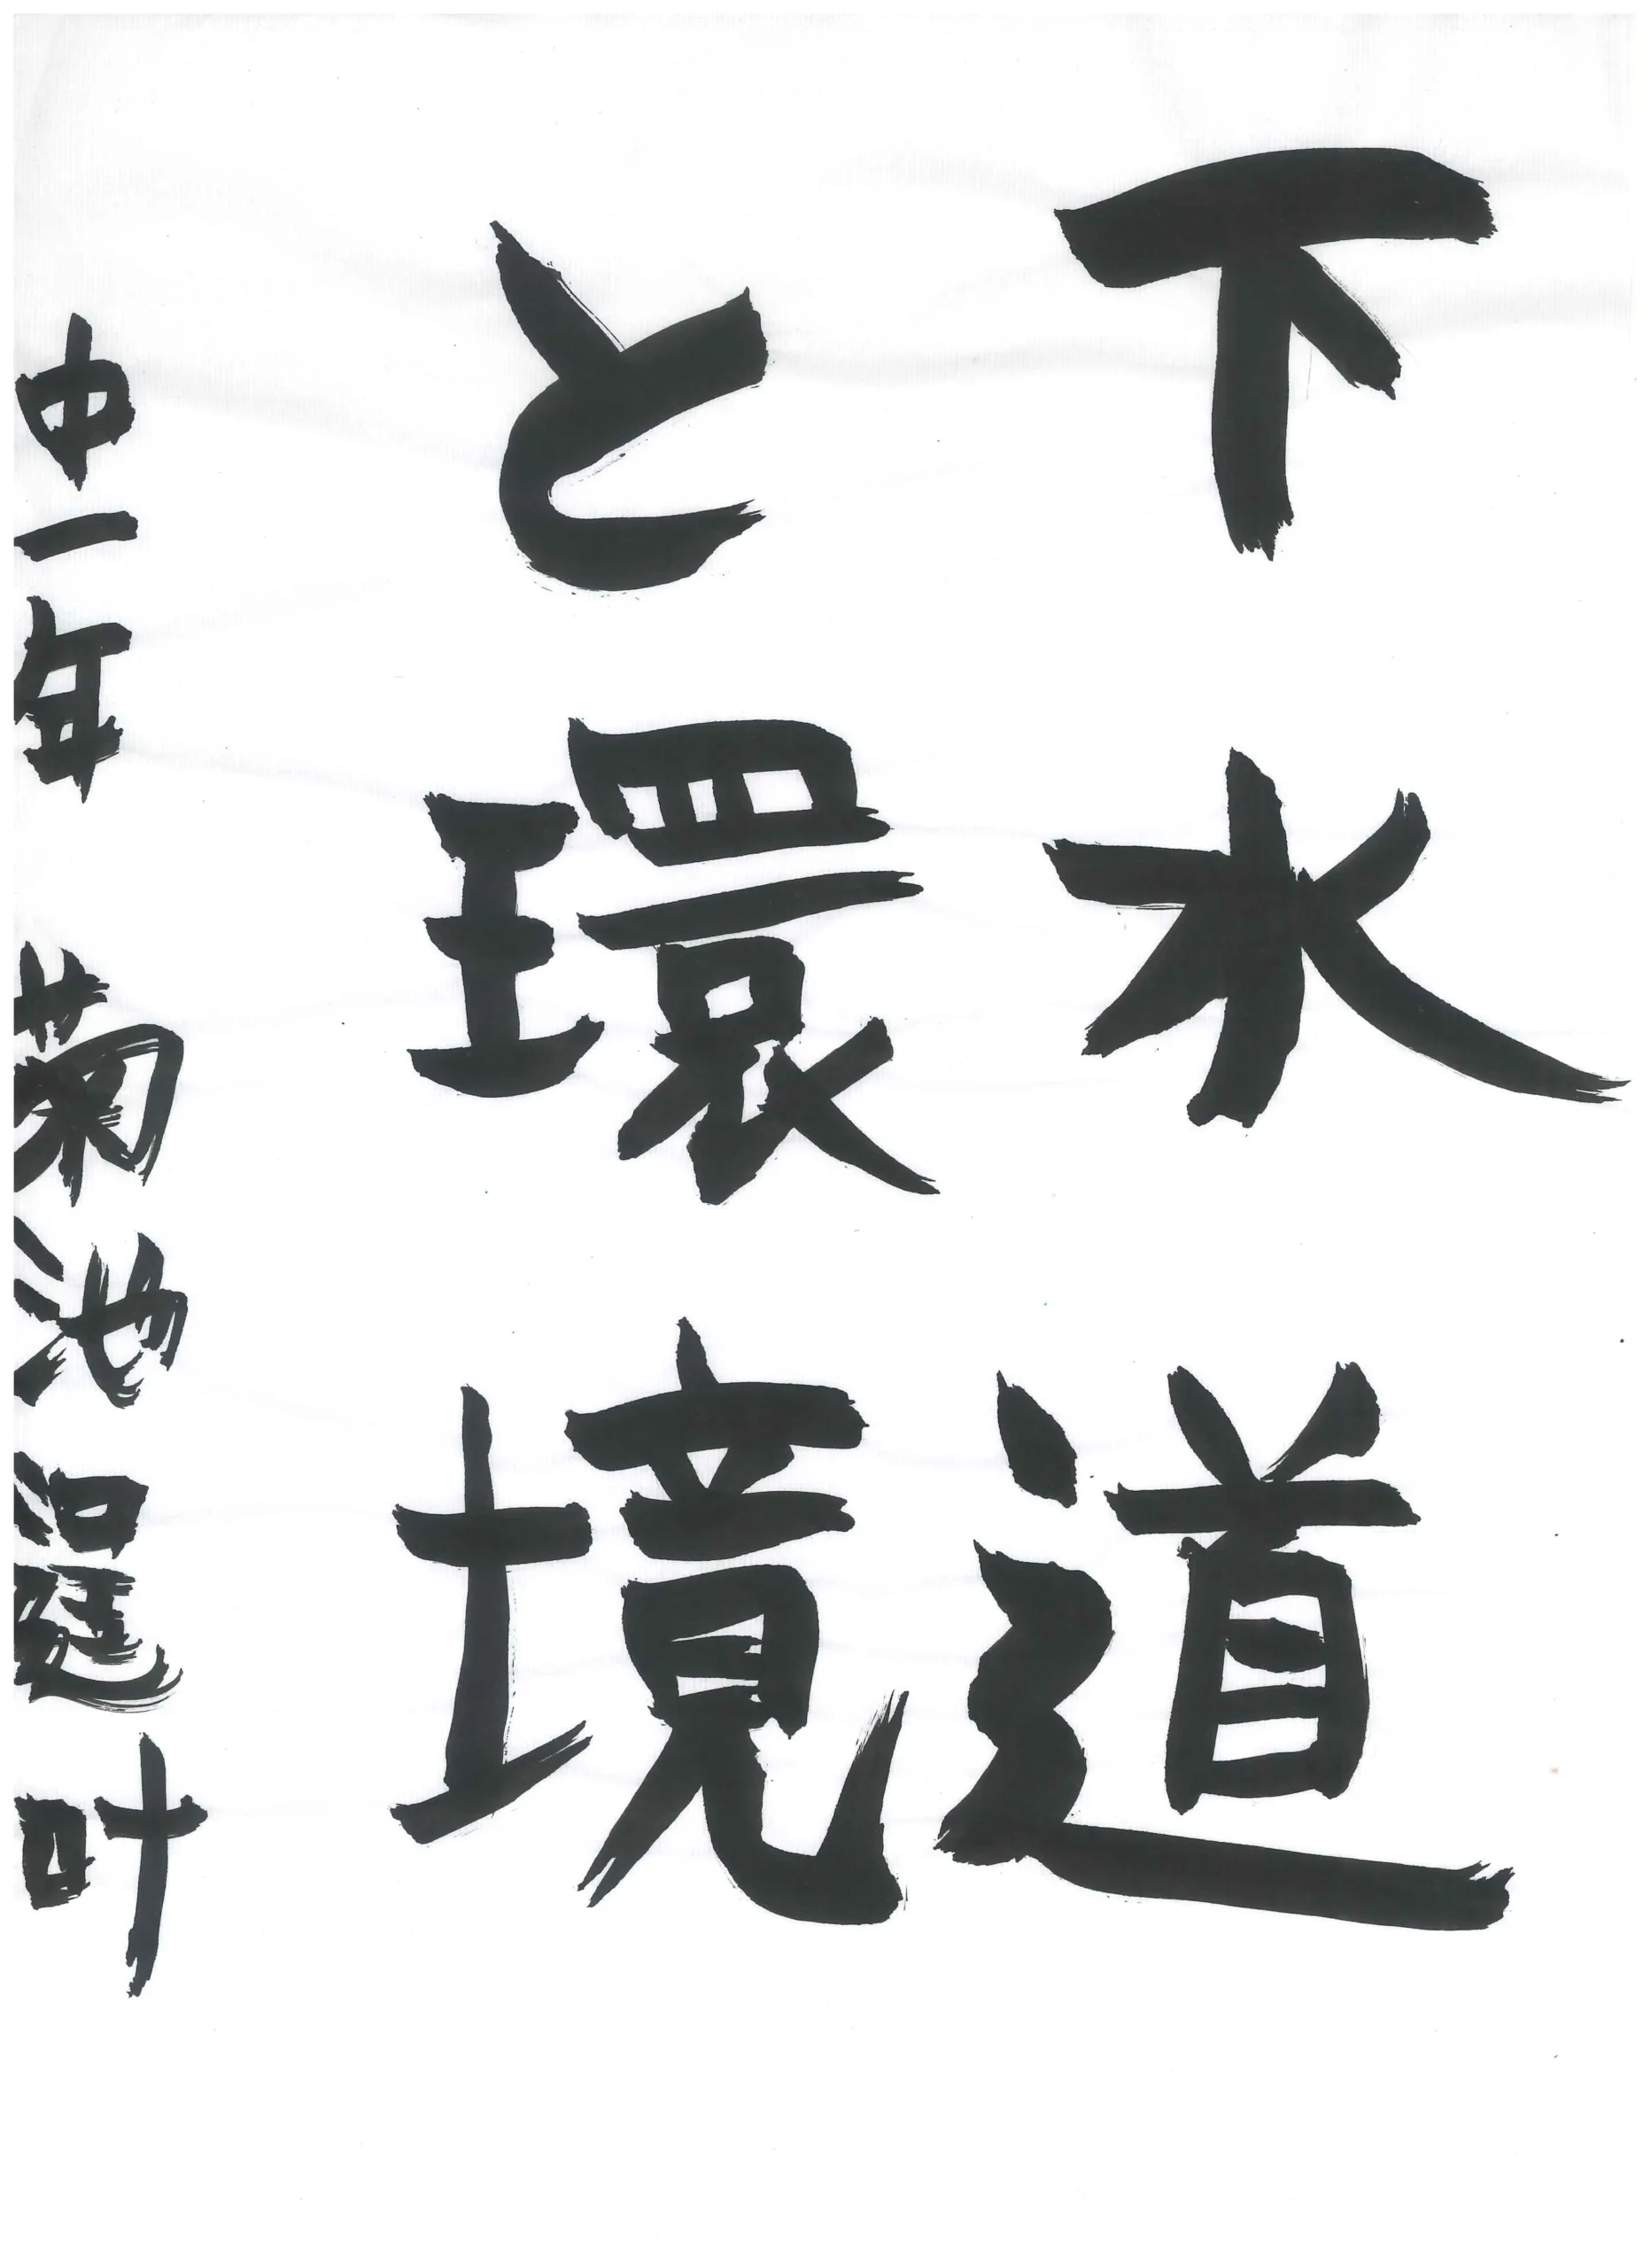 下水道
と環境
中一年 菊池 叶